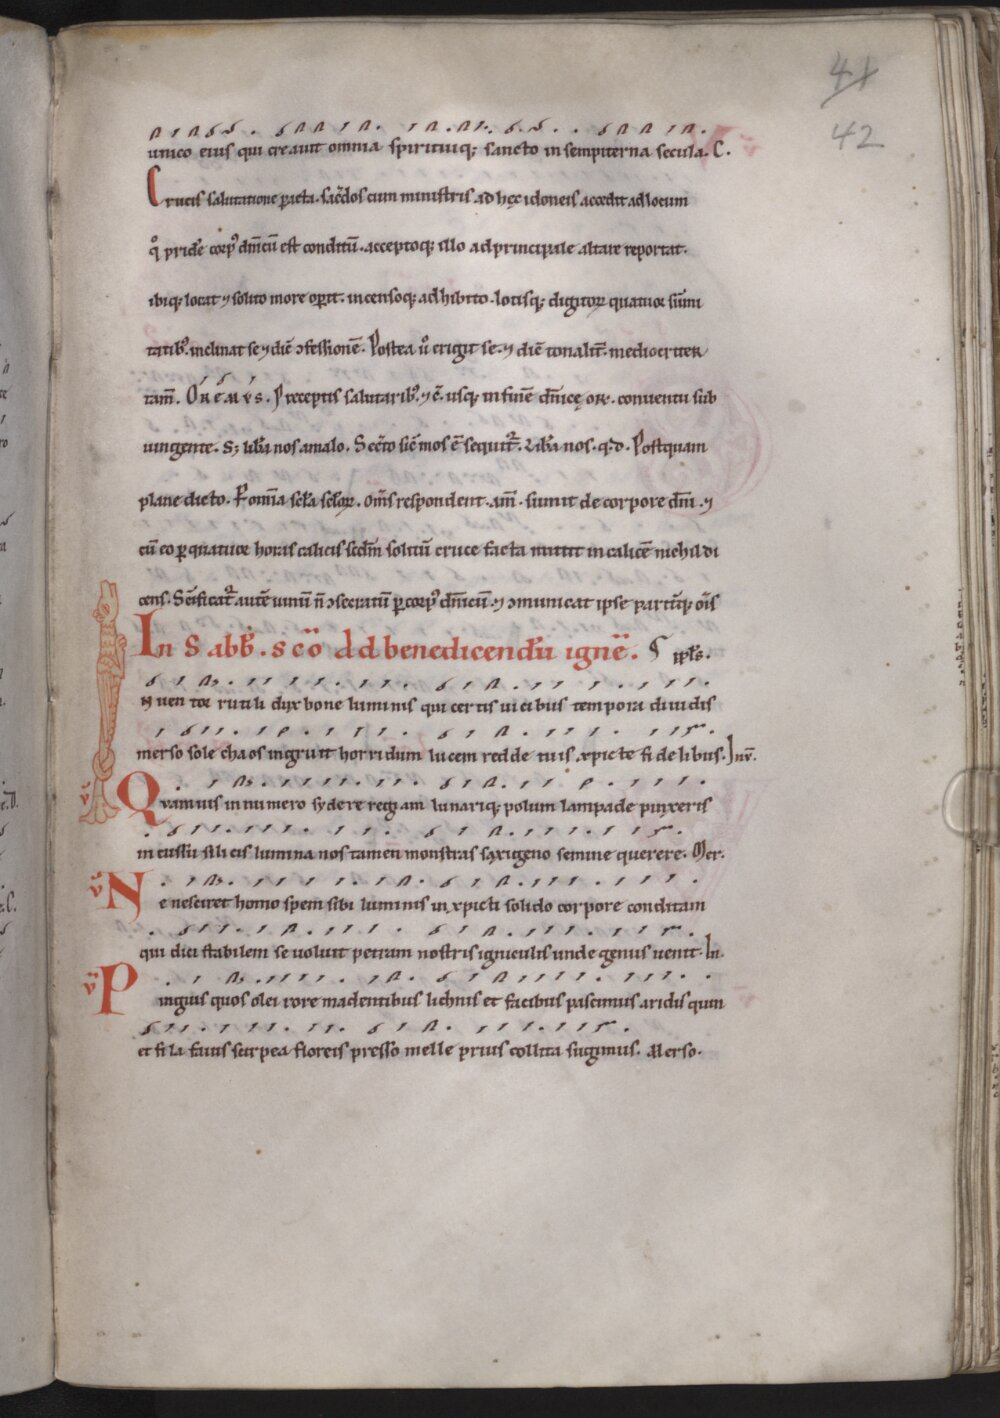 41
42
unico eius qui creauit omnia spirituiq; sancto in sempiterna secula. C.
Crucis salutatione ꝑacta. sac̄dos cum ministris ad hęc idoneis accedit ad locum
qͦ pridie corpꝰ dn̄icū est conditū. acceptoq; illo ad principale altare reportat.
ibiq; locat ⁊ solito more oꝑit. incensoq; adhibito. lotisq; digitoꝝ quatuor sūmi
tatibꝰ. inclinat se ⁊ dic̄ ↄfessionē. Postea ū erigit se. ⁊ dic̄ tonalit̄. mediocriter
tam̄. OREMVS. Preceptis salutaribꝰ. ⁊ c̄. usq; in finē dn̄icę or̄. conuentu sub
iungente. S; libā nos a malo. Secͣto sic̄ mos ē sequit̄. Libā nos. q. d. Postquam
plane dicto. P om̄ia scl̄a scl̄oꝝ. om̄s respondent. am̄. sumit de corpore dn̄i. ⁊
cū eo ꝑ quatuor horas calicis scd̄m solitū cruce facta mittit in calicē nichil di
cens. Sc̄ificat̄ autē uinū n̄ ↄsecratū ꝑ corpꝰ dn̄icū. ⁊ ↄmunicat ipse pariterq; om̄s
In Sabb̄. scō ad benedicendū ignē. ipl̄s.
Inuentor rutili dux bone luminis qui certis uicibus tempora diuidis
merso sole chaos ingruit horridum lucem redde tuis xpicte fidelibus. Inv̄.
v̄ Quamuis innumero sydere regiam lunariq; polum lampade pinxeris
incussu silicis lumina nos tamen monstras saxigeno semine querere. Mer.
v̄ Ne nesciret homo spem sibi luminis in xpicti solido corpore conditam
qui dici stabilem se uoluit petram nostris igniculis unde genus uenit. In.
v̄ Pinguis quos olei rore madentibus lichnis et facibus pascimus aridis quin
et fila fauis scirpea floreis presso melle prius collita fugimus. Merso.